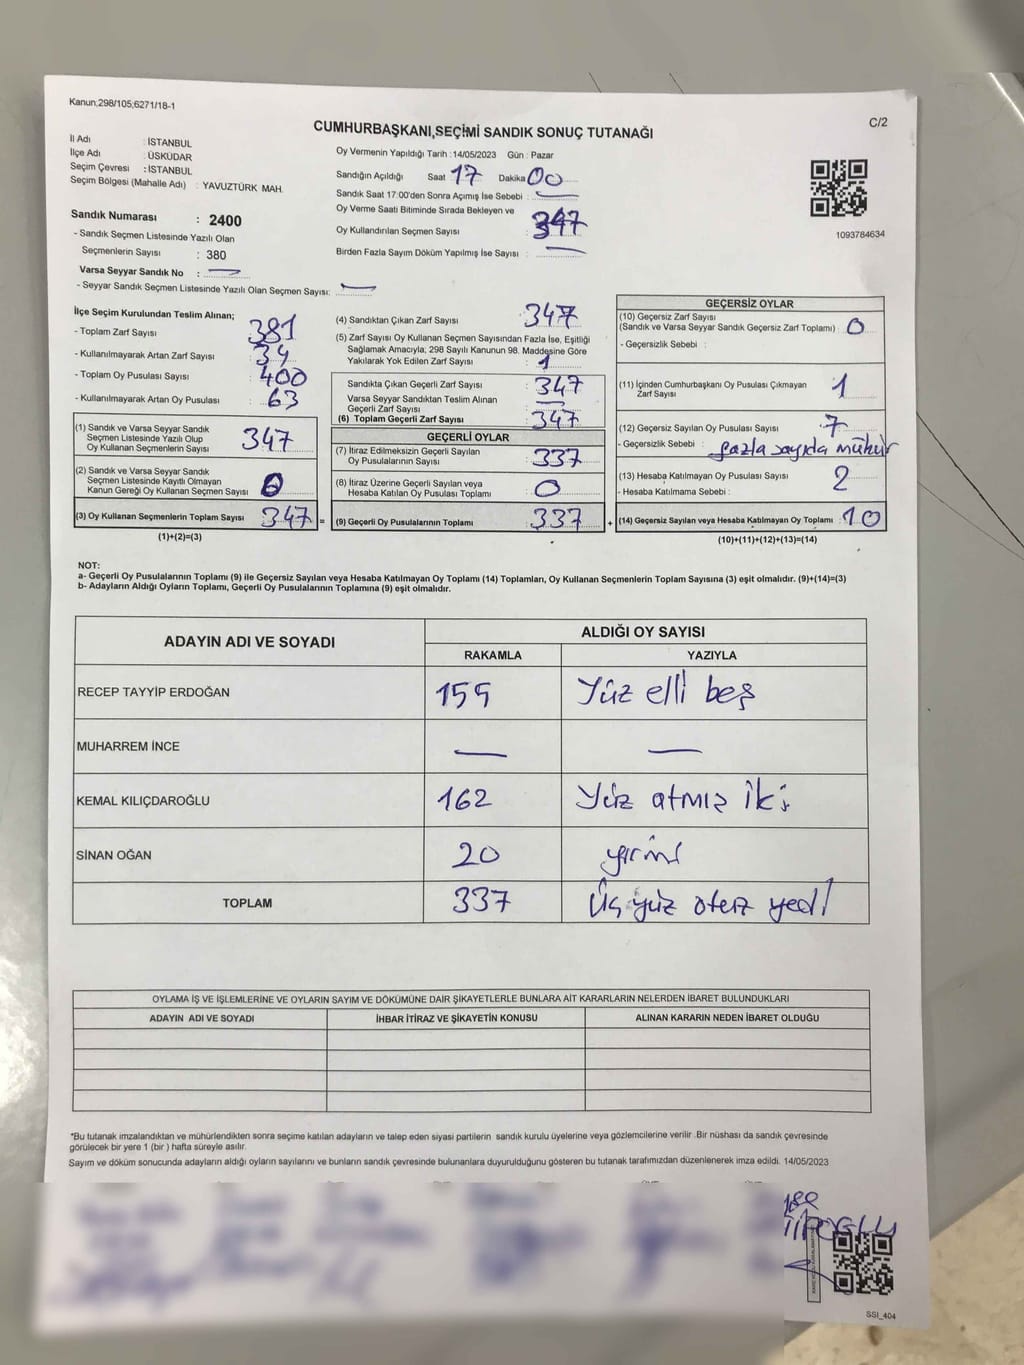 Kanun;298/105;6271/18-1
C/2
CUMHURBAŞKANI SEÇİMİ SANDIK SONUÇ TUTANAĞI
İl Adı : İSTANBUL
İlçe Adı : ÜSKÜDAR
Seçim Çevresi : İSTANBUL
Seçim Bölgesi (Mahalle Adı) : YAVUZTÜRK MAH.
Sandık Numarası : 2400
- Sandık Seçmen Listesinde Yazılı Olan
Seçmenlerin Sayısı : 380
Varsa Seyyar Sandık No : —
- Seyyar Sandık Seçmen Listesinde Yazılı Olan Seçmen Sayısı: —
Oy Vermenin Yapıldığı Tarih :14/05/2023 Gün : Pazar
Sandığın Açıldığı Saat 17 Dakika 00
Sandık Saat 17:00'den Sonra Açımış İse Sebebi : —
Oy Verme Saati Bitiminde Sırada Bekleyen ve
Oy Kullandırılan Seçmen Sayısı : 347
Birden Fazla Sayım Döküm Yapılmış İse Sayısı : —
1093784634
İlçe Seçim Kurulundan Teslim Alınan;
- Toplam Zarf Sayısı : 381
- Kullanılmayarak Artan Zarf Sayısı : 34
- Toplam Oy Pusulası Sayısı : 400
- Kullanılmayarak Artan Oy Pusulası : 63
(1) Sandık ve Varsa Seyyar Sandık
Seçmen Listesinde Yazılı Olup
Oy Kullanan Seçmenlerin Sayısı 347
(2) Sandık ve Varsa Seyyar Sandık
Seçmen Listesinde Kayıtlı Olmayan
Kanun Gereği Oy Kullanan Seçmen Sayısı 0
(3) Oy Kullanan Seçmenlerin Toplam Sayısı 347 =
(1)+(2)=(3)
(4) Sandıktan Çıkan Zarf Sayısı : 347
(5) Zarf Sayısı Oy Kullanan Seçmen Sayısından Fazla İse, Eşitliği
Sağlamak Amacıyla, 298 Sayılı Kanunun 98. Maddesine Göre
Yakılarak Yok Edilen Zarf Sayısı : 1
Sandıkta Çıkan Geçerli Zarf Sayısı : 347
Varsa Seyyar Sandıktan Teslim Alınan
Geçerli Zarf Sayısı : —
(6) Toplam Geçerli Zarf Sayısı : 347
GEÇERLİ OYLAR
(7) İtiraz Edilmeksizin Geçerli Sayılan
Oy Pusulalarının Sayısı : 337
(8) İtiraz Üzerine Geçerli Sayılan veya
Hesaba Katılan Oy Pusulası Toplamı : 0
(9) Geçerli Oy Pusulalarının Toplamı : 337 +
GEÇERSİZ OYLAR
(10) Geçersiz Zarf Sayısı
(Sandık ve Varsa Seyyar Sandık Geçersiz Zarf Toplamı) : 0
- Geçersizlik Sebebi :
(11) İçinden Cumhurbaşkanı Oy Pusulası Çıkmayan
Zarf Sayısı : 1
(12) Geçersiz Sayılan Oy Pusulası Sayısı : 7
- Geçersizlik Sebebi : fazla sayıda mühür
(13) Hesaba Katılmayan Oy Pusulası Sayısı : 2
- Hesaba Katılmama Sebebi :
(14) Geçersiz Sayılan veya Hesaba Katılmayan Oy Toplamı : 10
(10)+(11)+(12)+(13)=(14)
NOT:
a- Geçerli Oy Pusulalarının Toplamı (9) ile Geçersiz Sayılan veya Hesaba Katılmayan Oy Toplamı (14) Toplamları, Oy Kullanan Seçmenlerin Toplam Sayısına (3) eşit olmalıdır. (9)+(14)=(3)
b- Adayların Aldığı Oyların Toplamı, Geçerli Oy Pusulalarının Toplamına (9) eşit olmalıdır.
ADAYIN ADI VE SOYADI ALDIĞI OY SAYISI
RAKAMLA YAZIYLA
RECEP TAYYİP ERDOĞAN 155 Yüz elli beş
MUHARREM İNCE — —
KEMAL KILIÇDAROĞLU 162 Yüz atmış iki
SİNAN OĞAN 20 yirmi
TOPLAM 337 Üç yüz otuz yedi
OYLAMA İŞ VE İŞLEMLERİNE VE OYLARIN SAYIM VE DÖKÜMÜNE DAİR ŞİKAYETLERLE BUNLARA AİT KARARLARIN NELERDEN İBARET BULUNDUKLARI
ADAYIN ADI VE SOYADI İHBAR İTİRAZ VE ŞİKAYETİN KONUSU ALINAN KARARIN NEDEN İBARET OLDUĞU
*Bu tutanak imzalandıktan ve mühürlendikten sonra seçime katılan adayların ve talep eden siyasi partilerin sandık kurulu üyelerine veya gözlemcilerine verilir .Bir nüshası da sandık çevresinde
görülecek bir yere 1 (bir ) hafta süreyle asılır.
Sayım ve döküm sonucunda adayların aldığı oyların sayılarını ve bunların sandık çevresinde bulunanlara duyurulduğunu gösteren bu tutanak tarafımızdan düzenlenerek imza edildi. 14/05/2023
SSI_404